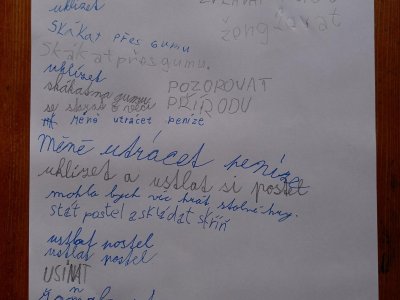 uklízet
žonglovat
SKÁKAT PŘES GUMU
Skákat přes gumu.
uklízet
POZOROVAT
skákat na gumu
PŘÍRODU
se
Méně utrácet peníze
Méně utrácet peníze
uklízet a ustlat si postel
mohla bych víc hrát stolní hry.
stát postel a skládat skříň
ustlat postel
ustlat postel
USÍNAT